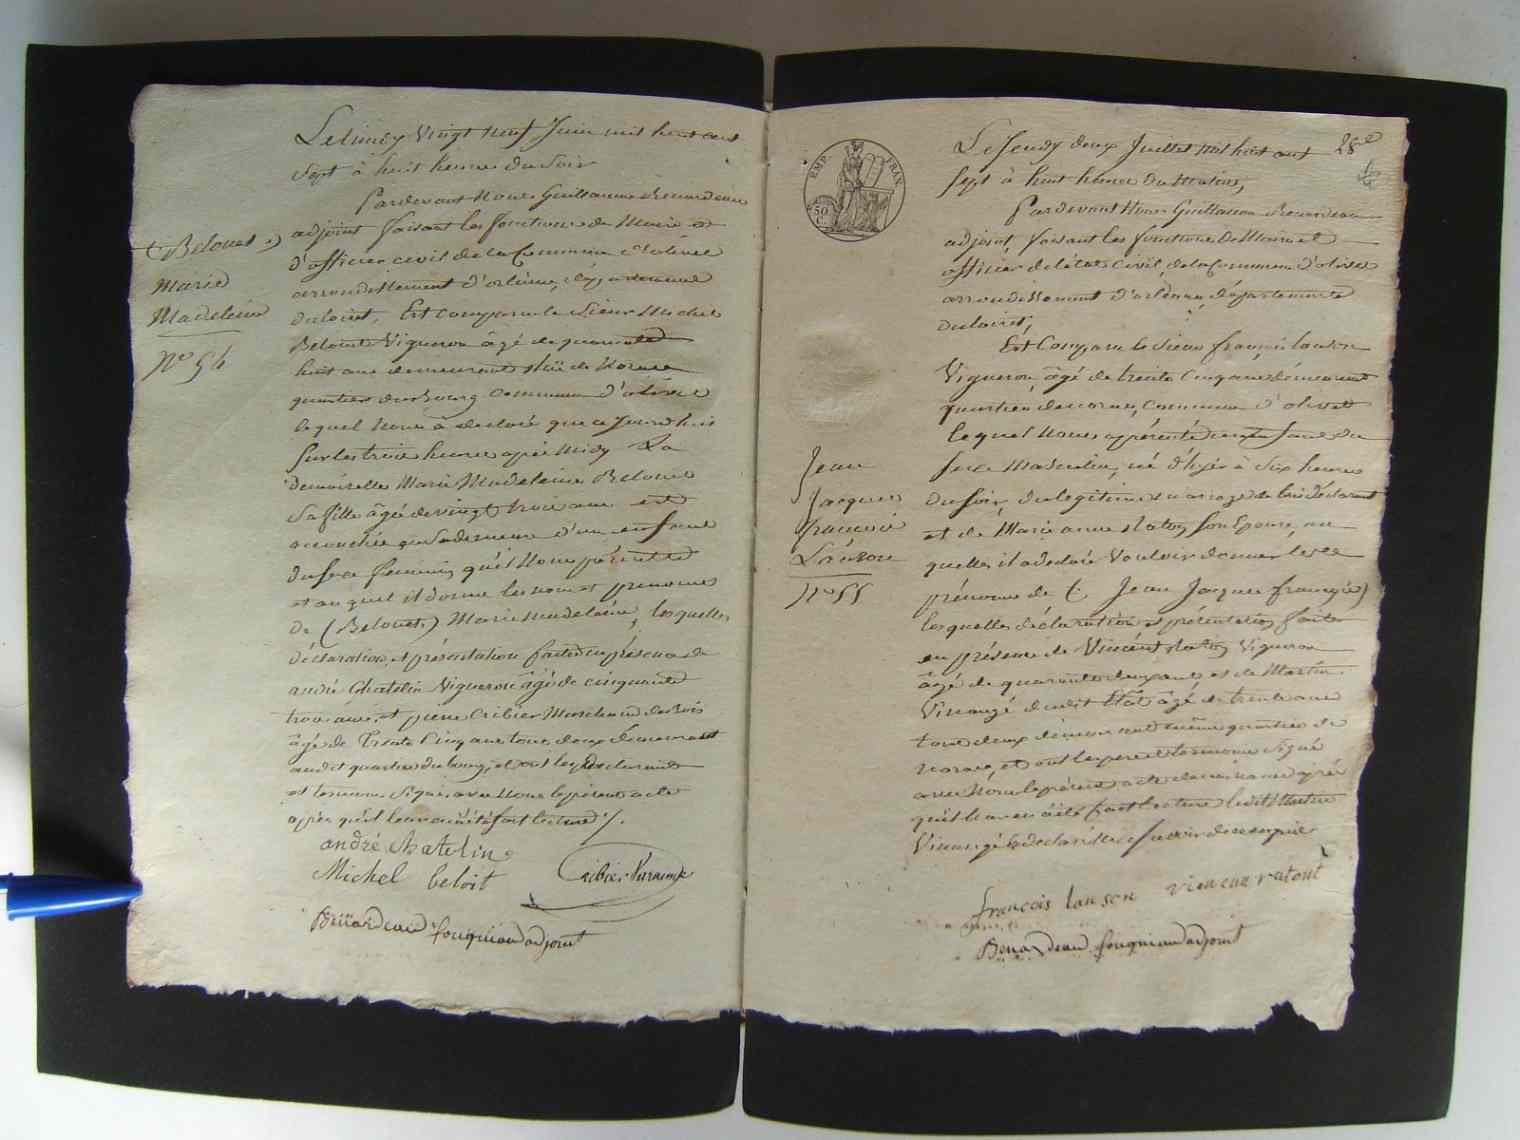 Le lundy Vingt neuf Juin mil huit cent
sept à huit heures du Soir
Pardevant Nous Guillaume Benardeau
adjoint faisant les fonctions de Maire et
d'officier civil de la Commune d'olivet
arrondissement d'orléans, département
du loiret, Est comparu le Sieur Michel
Beloit Vigneron âgé de quarante
huit ans demeurant
quartier du bourg commune d'olivet
lequel Nous à declaré que ce Jourd'huis
Sur les trois heures après Midy La
demoiselle Marie Madeleine Belouet
Sa fille âgée de vingt trois ans est
accouchée en Sa demeure d'un enfant
du Sexe feminin qu'il Nous présente
et au quel il donne les nom et prenoms
de (Belouet) Marie Madeleine, lesquelles
déclaration et présentation faites en présence de
andré Chatelin Vigneron âgé de cinquante
trois ans, et pierre Cribier Marchand de bois
âgé de Trente Cinq ans tous deux demeurant
audit quartier du bourg, et ont les declarant
et temoins Signé avec Nous le présent acte
après qu'il leur en à été fait lecture /.
andré Chatelin
Michel beloit
Cribier
Benardeau fouquiau adjoint
(Belouet)
Marie
Madeleine
N° 54
EMP. FRAN.
50 C.
28
Le Jeudy deux Juillet mil huit cent
sept à huit heures du Matin,
Pardevant Nous Guillaume Benardeau
adjoint, faisant les fonctions de Maire et
officier de l'état civil de la Commune d'olivet
arrondissement d'orléans, département
du loiret,
Est Comparu le Sieur françois lanson
Vigneron, âgé de trente Cinq ans demeurant
quartier de, Commune d'olivet
lequel Nous a présenté un enfant du
Sexe Masculin, né d'hyer à Six heures
du Soir, du legitime mariage de lui Declarant
et de Marie anne Ratoy Son Epouse, au
quelles il a declaré Vouloir donner les
prénoms de ( Jean Jacques françois)
lesquelles déclaration et présentation faites
en présence de Vincent Ratoy Vigneron
âgé de quarante deux ans, et de Martin
Vinauzé dudit état âgé de trente ans
tous deux demeurant même quartier de
et ont le pere et temoins Signé
avec Nous le présent acte de naissance après
qu'il leur en à été fait lecture ledit Martin
Vinauzé à declaré ne Savoir
françois lanson
Benardeau fouquiau adjoint
Jean
Jacques
françois
Lanson
N° 55